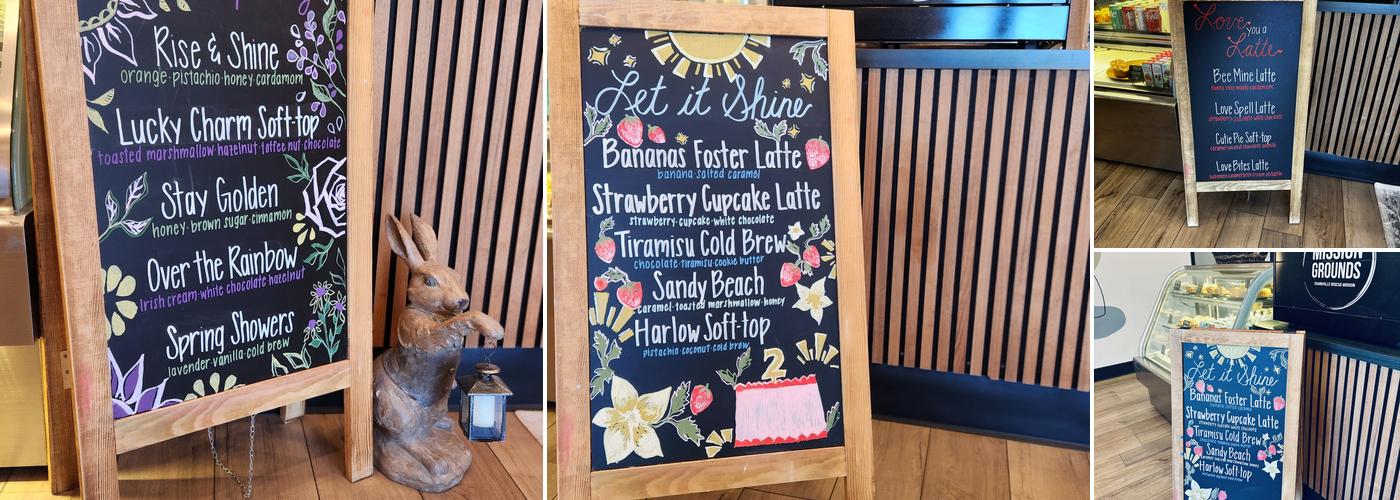 Rise & Shine
orange·pistachio·honey·cardamom
Lucky Charm Soft-top
toasted marshmallow·hazelnut·toffee nut·chocolate
Stay Golden
honey·brown sugar·cinnamon
Over the Rainbow
Irish cream·white chocolate·hazelnut
Spring Showers
lavender·vanilla·cold brew
Let it Shine
Bananas Foster Latte
banana·salted caramel
Strawberry Cupcake Latte
strawberry·cupcake·white chocolate
Tiramisu Cold Brew
chocolate·tiramisu·cookie butter
Sandy Beach
caramel·toasted marshmallow·honey
Harlow Soft-top
pistachio·coconut·cold brew
2
Love you a
Latte
Bee Mine Latte
Love Spell Latte
Cutie Pie Soft-top
Love Bites Latte
MISSION
GROUNDS
EVANSVILLE RESCUE MISSION
Let it Shine
Bananas Foster Latte
banana·salted caramel
Strawberry Cupcake Latte
strawberry·cupcake·white chocolate
Tiramisu Cold Brew
chocolate·tiramisu·cookie butter
Sandy Beach
caramel·toasted marshmallow·honey
Harlow Soft-top
pistachio·coconut·cold brew